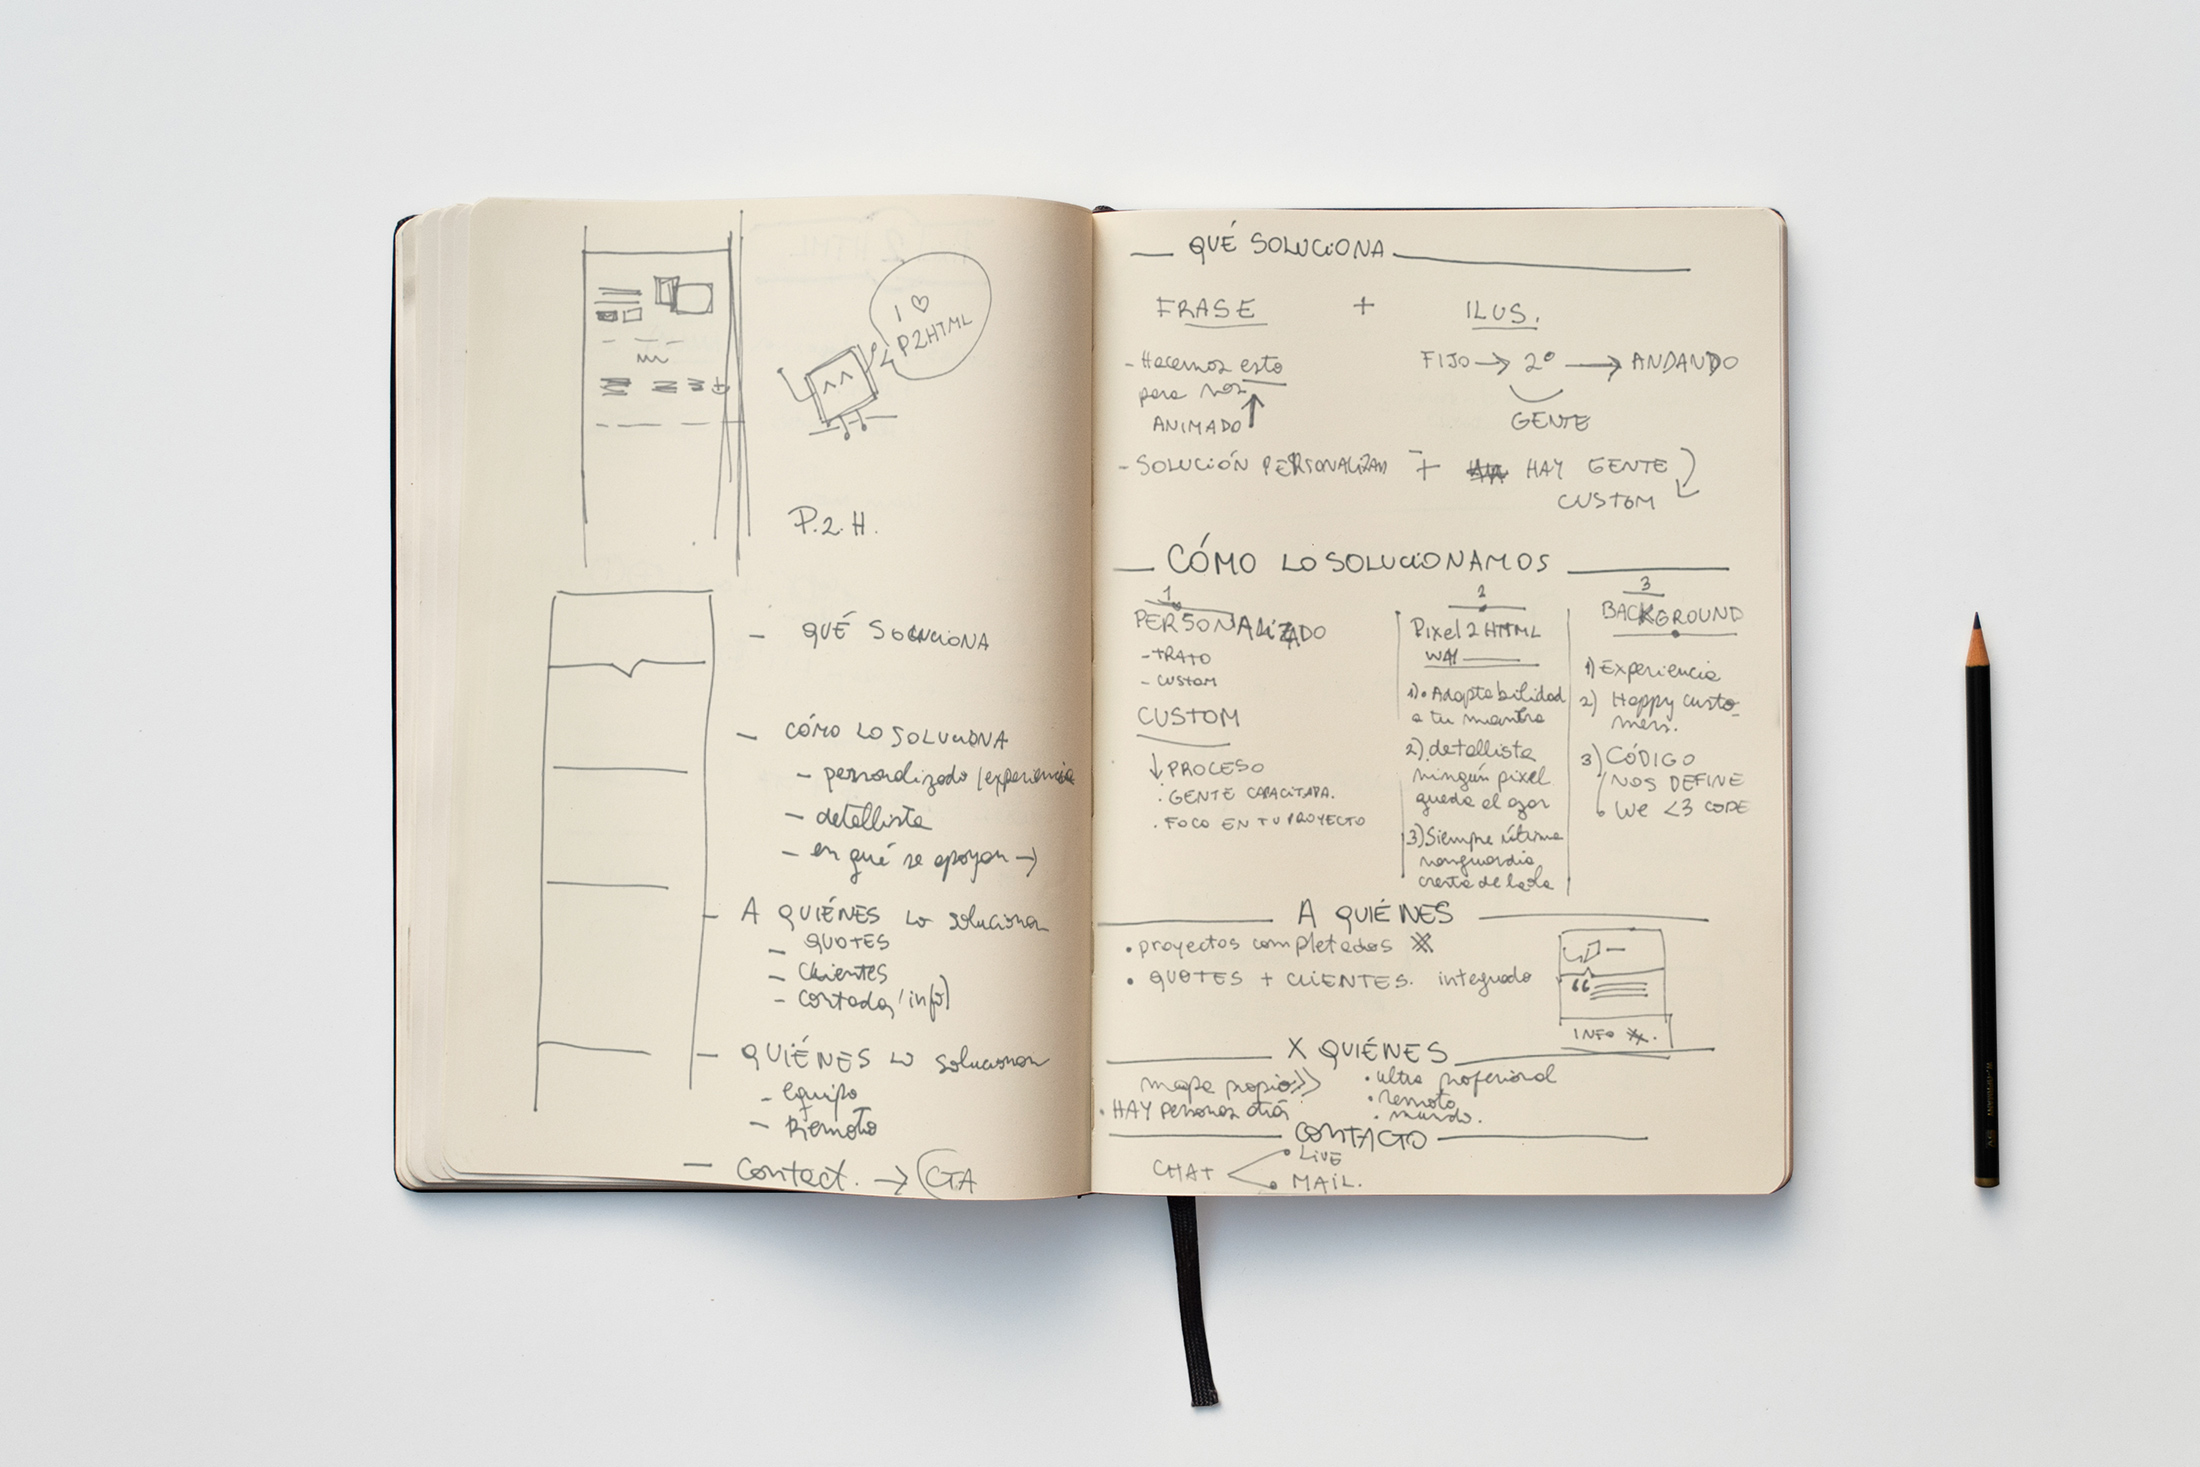 I ♡
P2HTML
P.2.H.
— QUÉ SOLUCIONA
— CÓMO LO SOLUCIONA
— personalizado / experiencia
— detallista
— en qué se apoyan →
— A QUIÉNES LO solucionan
— QUOTES
— Clientes
— info)
— QUIÉNES LO solucionan
— Equipo
— Remoto
— Contact. → CTA
QUÉ SOLUCIONA
FRASE + ILUS.
- Hacemos esto
para
ANIMADO ↑
FIJO → 2º → ANDANDO
GENTE
- SOLUCIÓN + HAY GENTE
CUSTOM
CÓMO LO SOLUCIONAMOS
1
PERSONALIZADO
- TRATO
- CUSTOM
CUSTOM
↓ PROCESO
· GENTE CAPACITADA.
· FOCO EN TU PROYECTO
2
Pixel 2 HTML
WAY
1)• Adaptabilidad
a tu
2) detallista
ningún pixel
queda al azar
3) Siempre última
vanguardia
cresta de la ola
3
BACKGROUND
1) Experiencia
2) Happy custo-
mers.
3) CÓDIGO
NOS DEFINE
We <3 CODE
A QUIÉNES
• proyectos completados
• QUOTES + CLIENTES. integrado
“
INFO
X QUIÉNES
mapa propio >>
• HAY personas atrás
• ultra profesional
• remoto
• mundo.
CONTACTO
CHAT
• LIVE
• MAIL.